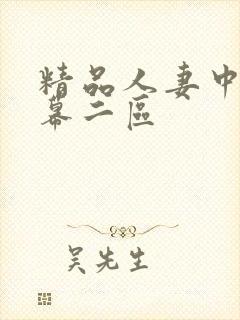 精品人妻中
幕二區
吴先生